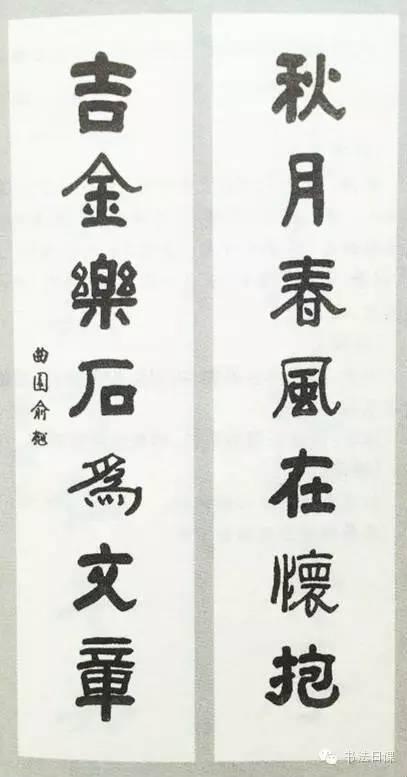 秋月春風在懷抱
吉金樂石為文章
曲園俞樾
书法日课